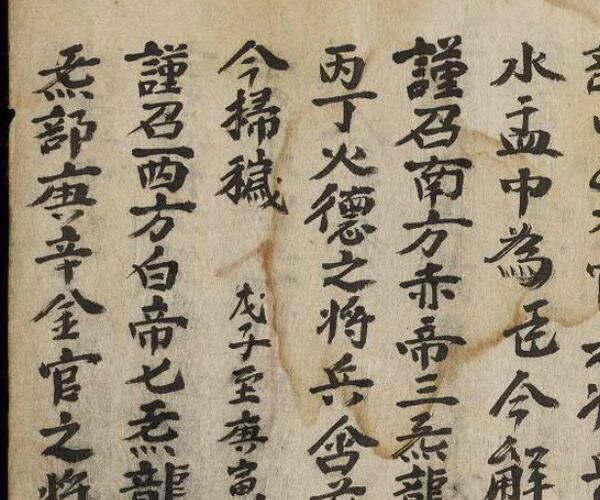 水盂中為臣今解
謹召南方赤帝三炁龍
丙丁火德之将兵
今掃穢 戊子至庚寅
謹召西方白帝七炁龍
炁部庚辛金官之将